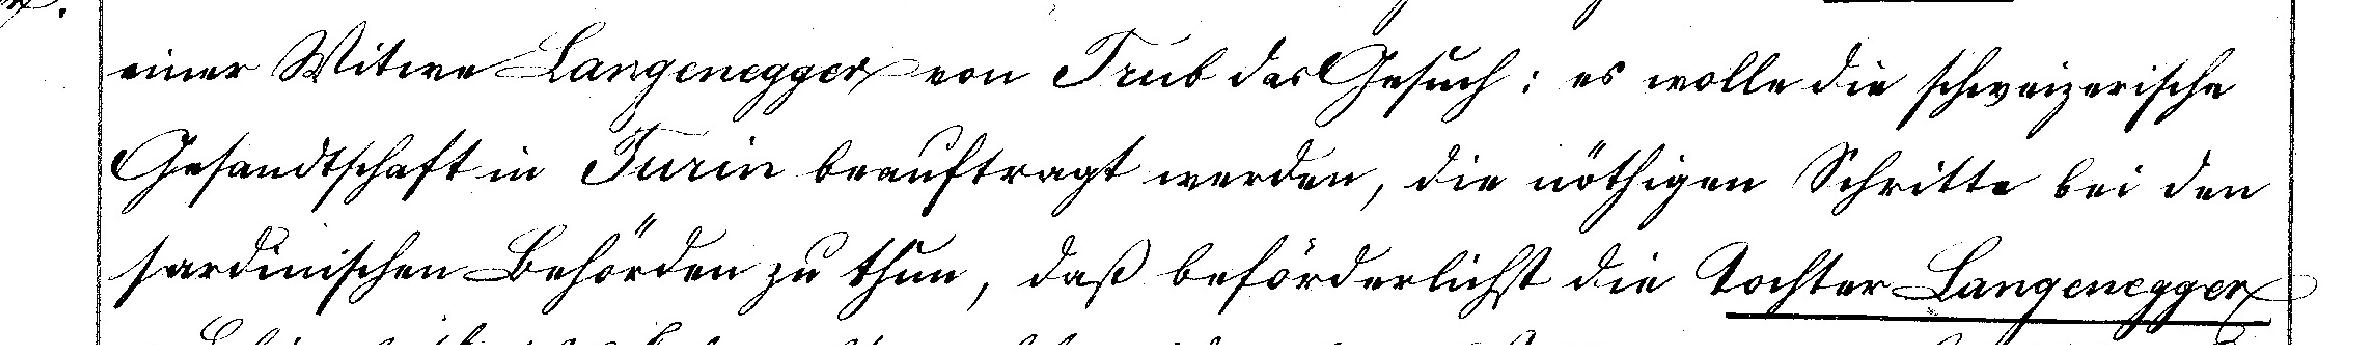 einer Witwe Langenegger von Trub das Gesuch: es wolle die schweizerische
Gesandtschaft in Turin beauftragt werden, die nöthigen Schritte bei den
sardinischen Behörden zu thun, daß beförderlichst die Tochter Langenegger